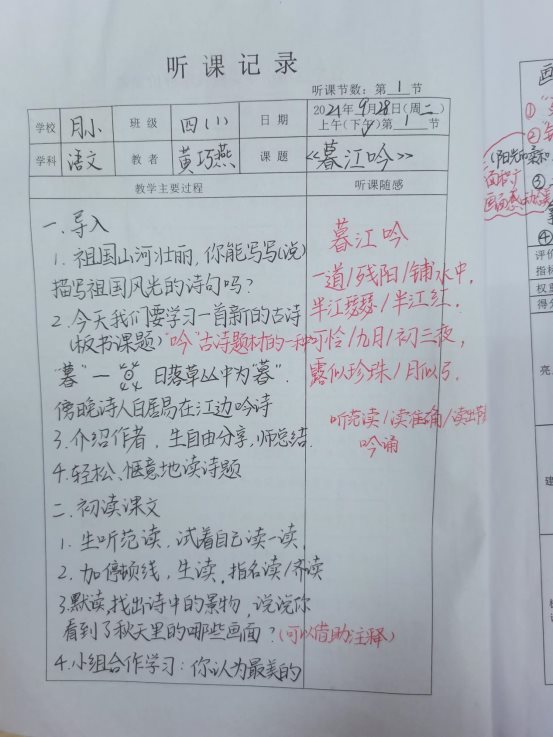 听课记录
听课节数：第 1 节
学校 月小 班级 四（1） 日期 2021年9月28日（周二）
上午（下午）第 1 节
学科 语文 教者 黄巧燕 课题 《暮江吟》
教学主要过程 听课随感
一、导入
1. 祖国山河壮丽，你能写写(说)
描写祖国风光的诗句吗？
2. 今天我们要学习一首新的古诗
(板书课题) "吟"古诗题材的一种
"暮"— 日落草丛中为"暮".
傍晚诗人白居易在江边吟诗
3. 介绍作者，生自由分享,师总结.
4. 轻松、惬意地读诗题
二、初读课文
1. 生听范读，试着自己读一读
2. 加停顿线，生读，指名读/齐读
3. 默读,找出诗中的景物，说说你
看到了秋天里的哪些画面？(可以借助注释)
4. 小组合作学习：你认为最美的
暮江吟
一道/残阳/铺水中,
半江瑟瑟/半江红.
可怜/九月/初三夜,
露似珍珠/月似弓.
听范读/读准确/读出节
吟诵
画
①
②
(阳光
③
④
评价
指标
权重
得分
亮
建